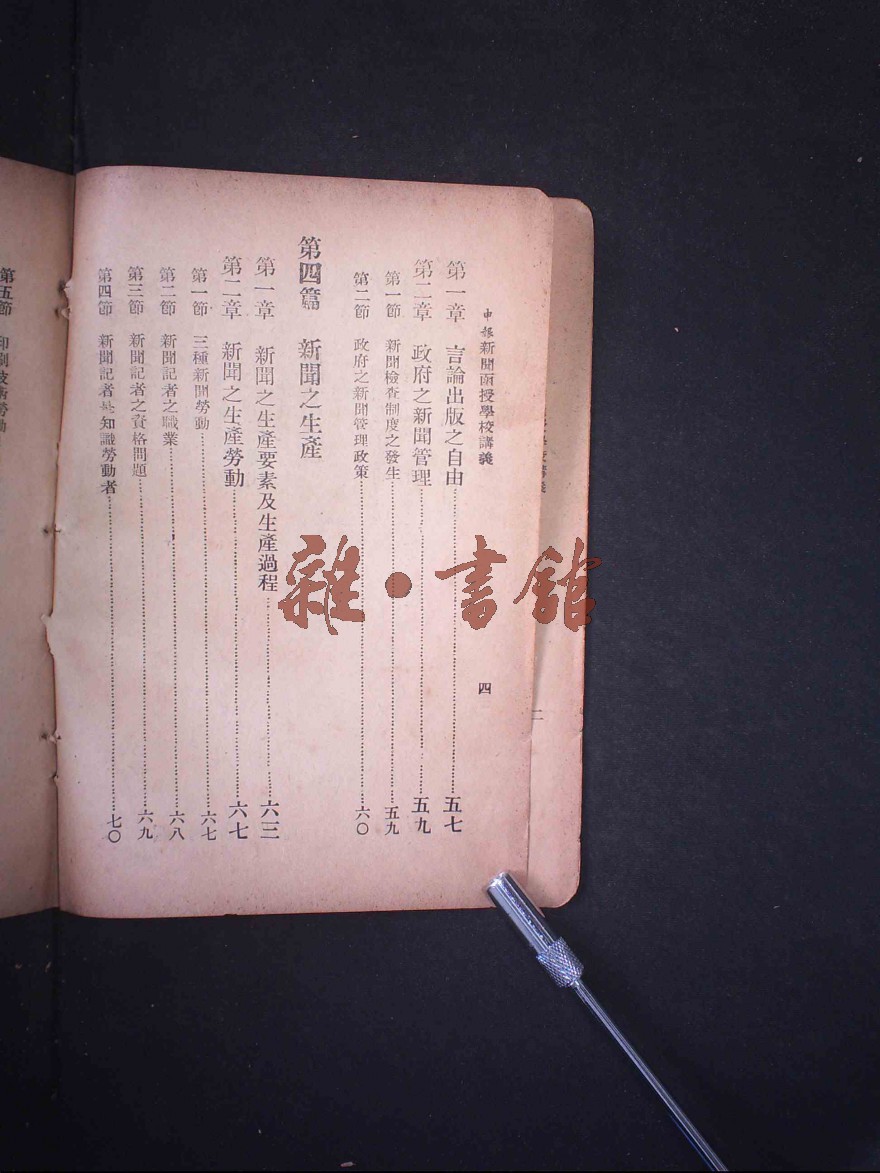 申報新聞函授學校講義
四
第一章 言論出版之自由……五七
第二章 政府之新聞管理……五九
第一節 新聞檢查制度之發生……五九
第二節 政府之新聞管理政策……六〇
第四篇 新聞之生產
第一章 新聞之生產要素及生產過程……六三
第二章 新聞之生產勞動……六七
第一節 三種新聞勞動……六七
第二節 新聞記者之職業……六八
第三節 新聞記者之資格問題……六九
第四節 新聞記者是知識勞動者……七〇
第五節 印刷技術勞動
雜•書館